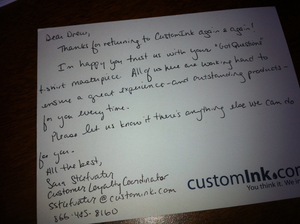 Dear Drew,
Thanks for returning to CustomInk again & again!
I'm happy you trust us with your "Got Questions"
t-shirt masterpiece. All of us here are working hard to
ensure a great experience - and outstanding products -
for you every time.
Please let us know if there's anything else we can do
for you.
All the best,
Sara
Customer Loyalty Coordinator
@customink.com
866-445-8160
customInk.com
You think it. We ink